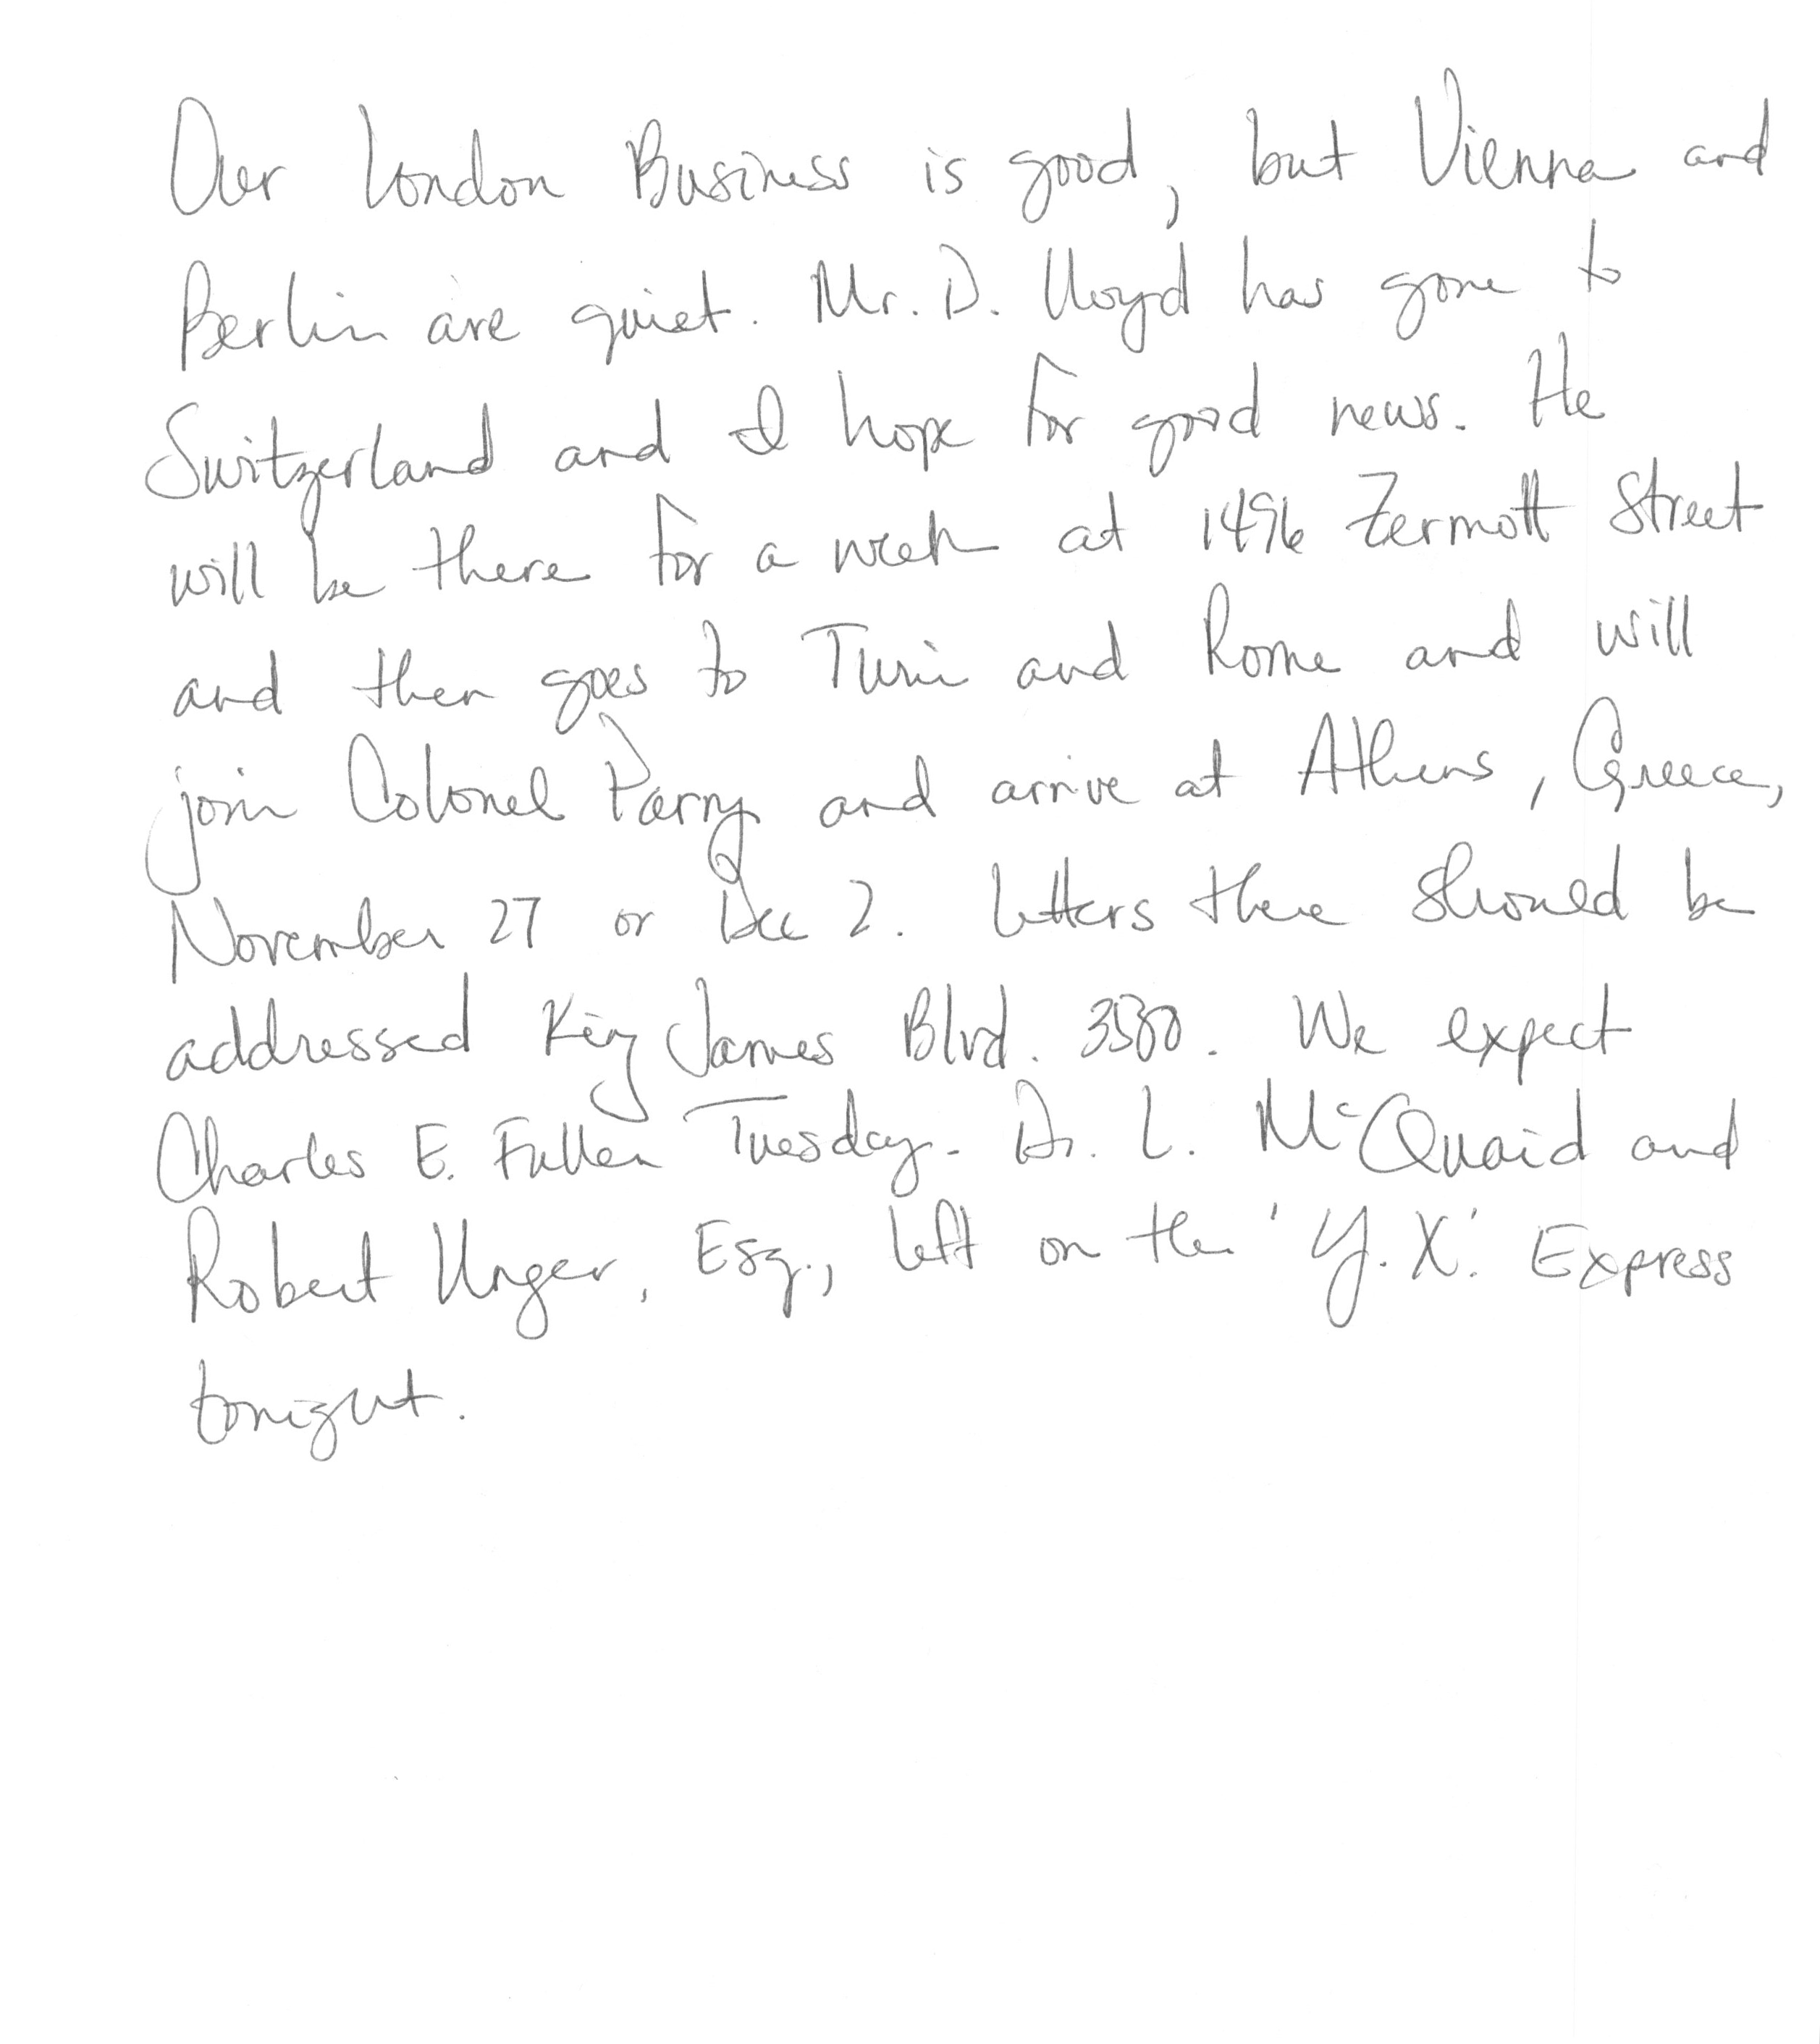 Our London Business is good, but Vienna and
Berlin are quiet. Mr. D. Lloyd has gone to
Switzerland and I hope for good news. He
will be there for a week at 1496 Zermott Street
and then goes to Turin and Rome and will
join Colonel Parry and arrive at Athens, Greece,
November 27 or Dec 2. Letters there should be
addressed King James Blvd. 3580. We expect
Charles E. Fuller Tuesday. Dr. L. McQuaid and
Robert Unger, Esq., left on the 'Y.X.' Express
tonight.